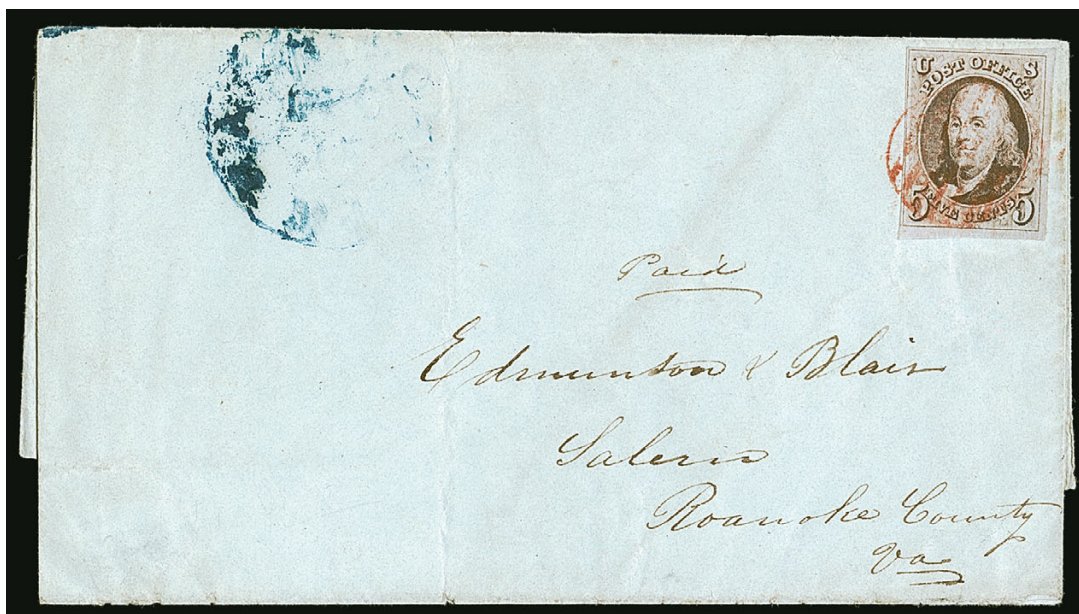 U S
POST OFFICE
FIVE CENTS
5 5
Paid
Edmunton & Blair
Salem
Roanoke County
Va